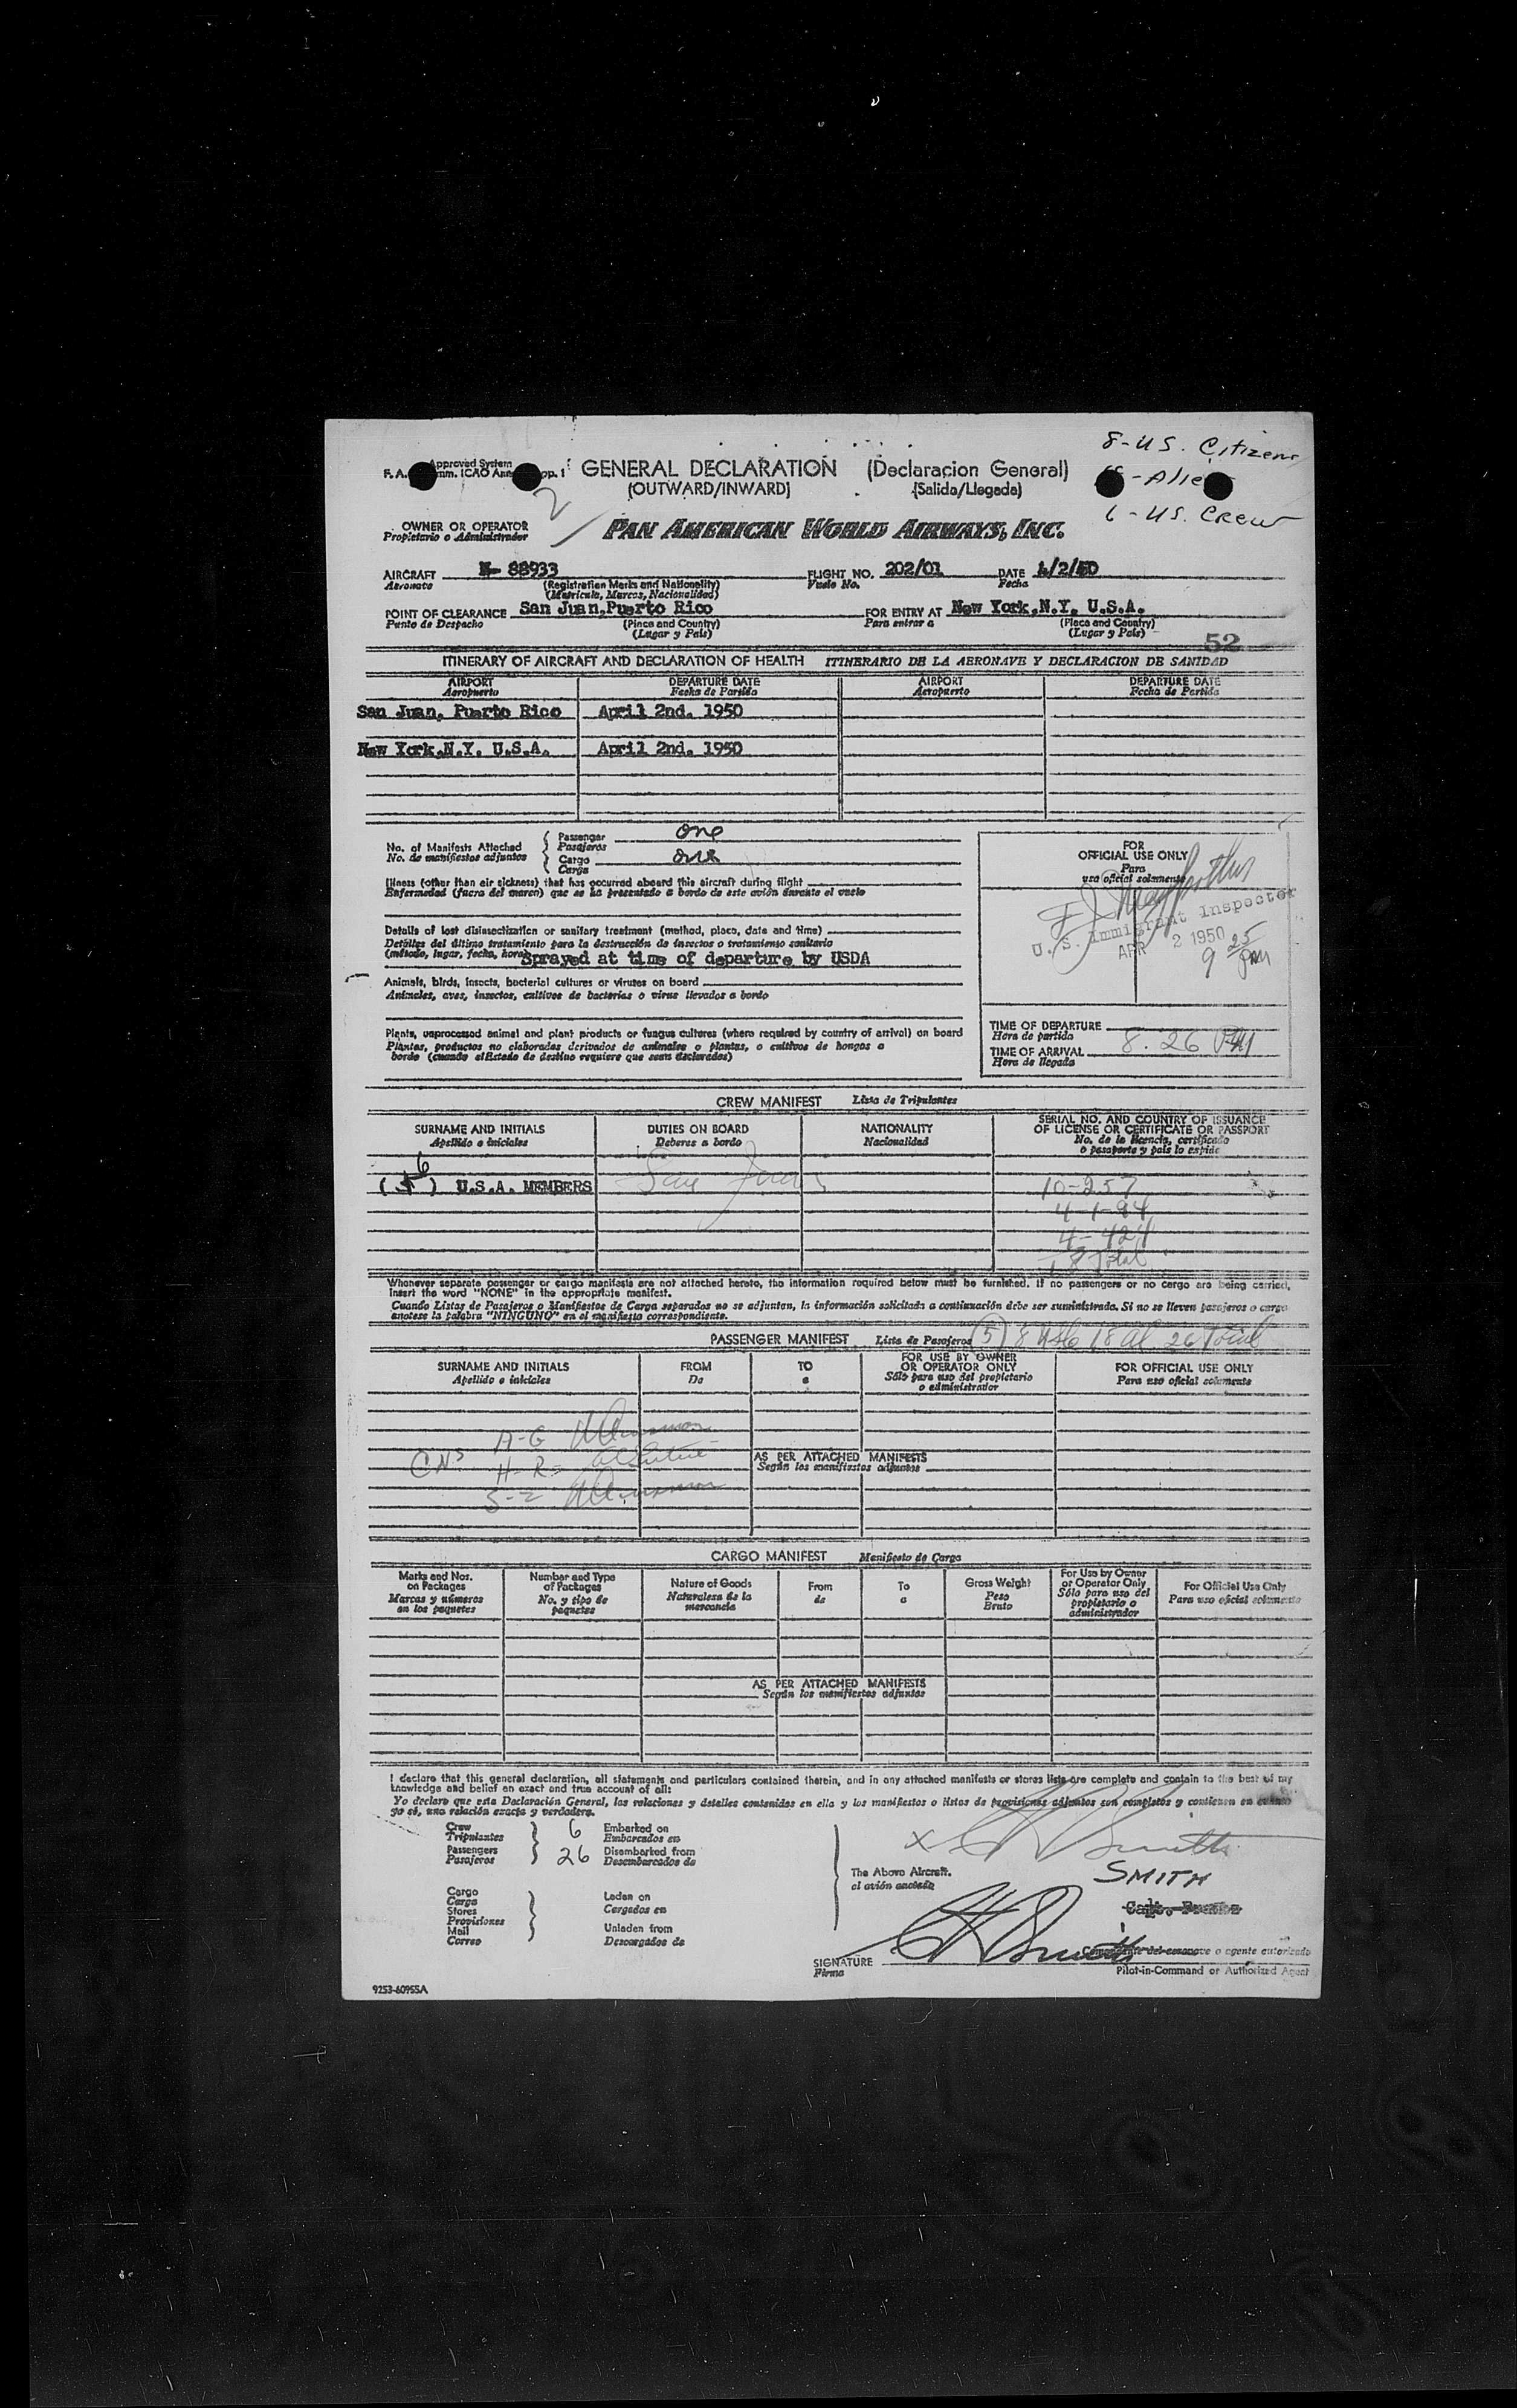 8-U.S. Citizens
Approved System
GENERAL DECLARATION (Declaracion General)
(OUTWARD/INWARD) (Salida/Llegada)
6-US. Crew
2
OWNER OR OPERATOR
Propietario o Administrador
PAN AMERICAN WORLD AIRWAYS, INC.
AIRCRAFT N- 88933 FLIGHT NO. 202/01 DATE 4/2/50
Aeronave Vuelo No. Fecha
(Registration Marks and Nationality)
(Matricula, Marcas, Nacionalidad)
POINT OF CLEARANCE San Juan,Puerto Rico FOR ENTRY AT New York,N.Y. U.S.A.
Punto de Despacho (Place and Country) Para entrar a (Place and Country)
(Lugar y Pais) (Lugar y Pais)
52
ITINERARY OF AIRCRAFT AND DECLARATION OF HEALTH ITINERARIO DE LA AERONAVE Y DECLARACION DE SANIDAD
AIRPORT DEPARTURE DATE AIRPORT DEPARTURE DATE
Aeropuerto Fecha de Partida Aeropuerto Fecha de Partida
San Juan, Puerto Rico April 2nd. 1950
New York,N.Y. U.S.A. April 2nd. 1950
No. of Manifests Attached
No. de manifiestos adjuntos
Passenger one
Pasajeros
Cargo one
Carga
Illness (other than air sickness) that has occurred aboard this aircraft during flight
Enfermedad (fuera del mareo) que se ha presentado a bordo de este avión durante el vuelo
Details of last disinsectization or sanitary treatment (method, place, date and time)
Detalles del último tratamiento para la destrucción de insectos o tratamiento sanitario
(método, lugar, fecha, hora) Sprayed at time of departure by USDA
Animals, birds, insects, bacterial cultures or viruses on board
Animales, aves, insectos, cultivos de bacterias o virus llevados a bordo
Plants, unprocessed animal and plant products or fungus cultures (where required by country of arrival) on board
Plantas, productos no elaborados derivados de animales o plantas, o cultivos de hongos a
bordo (cuando el Estado de destino requiere que sean declarados)
FOR
OFFICIAL USE ONLY
Para
uso oficial solamente
U.S. Immigrant Inspector
APR 2 1950
9 25 PM
TIME OF DEPARTURE
Hora de partida
TIME OF ARRIVAL 8.26 PM
Hora de llegada
CREW MANIFEST Lista de Tripulantes
SURNAME AND INITIALS DUTIES ON BOARD NATIONALITY SERIAL NO. AND COUNTRY OF ISSUANCE
OF LICENSE OR CERTIFICATE OR PASSPORT
Apellido e iniciales Deberes a bordo Nacionalidad No. de la licencia, certificado
o pasaporte y pais lo expide
6
U.S.A. MEMBERS San Juan 10-257
4-1-94
4-424
18 Total
Whenever separate passenger or cargo manifests are not attached hereto, the information required below must be furnished. If no passengers or no cargo are being carried,
insert the word "NONE" in the appropriate manifest.
Cuando Listas de Pasajeros o Manifiestos de Carga separados no se adjuntan, la información solicitada a continuación debe ser suministrada. Si no se lleven pasajeros o carga
anotese la palabra "NINGUNO" en el manifiesto correspondiente.
PASSENGER MANIFEST Lista de Pasajeros 5 8 USC 18 Al. 26 Total
SURNAME AND INITIALS FROM TO FOR USE BY OWNER
OR OPERATOR ONLY FOR OFFICIAL USE ONLY
Apellido e iniciales De a Sólo para uso del propietario
o administrador Para uso oficial solamente
A-G
H-R
S-Z
AS PER ATTACHED MANIFESTS
Según los manifiestos adjuntos
CARGO MANIFEST Manifiesto de Carga
Marks and Nos.
on Packages
Marcas y números
en los paquetes
Number and Type
of Packages
No. y tipo de
paquetes
Nature of Goods
Naturaleza de la
mercancía
From
de
To
a
Gross Weight
Peso
Bruto
For Use by Owner
or Operator Only
Sólo para uso del
propietario o
administrador
For Official Use Only
Para uso oficial solamente
AS PER ATTACHED MANIFESTS
Según los manifiestos adjuntos
I declare that this general declaration, all statements and particulars contained therein, and in any attached manifests or stores lists are complete and contain to the best of my
knowledge and belief an exact and true account of all:
Yo declaro que esta Declaración General, las relaciones y detalles contenidos en ella y los manifiestos o listas de provisiones adjuntos son completos y contienen en cuanto
yo sé, una relación exacta y verdadera.
Crew 6 Embarked on
Tripulantes Embarcados en
Passengers 26 Disembarked from
Pasajeros Desembarcados de
Cargo
Carga
Stores
Provisiones
Mail
Correo
Laden on
Cargados en
Unladen from
Descargados de
The Above Aircraft.
el avión anotado
X Smith
SMITH
SIGNATURE Smith
Firma
Comandante del aeronave o agente autorizado
Pilot-in-Command or Authorized Agent
9253-60955A